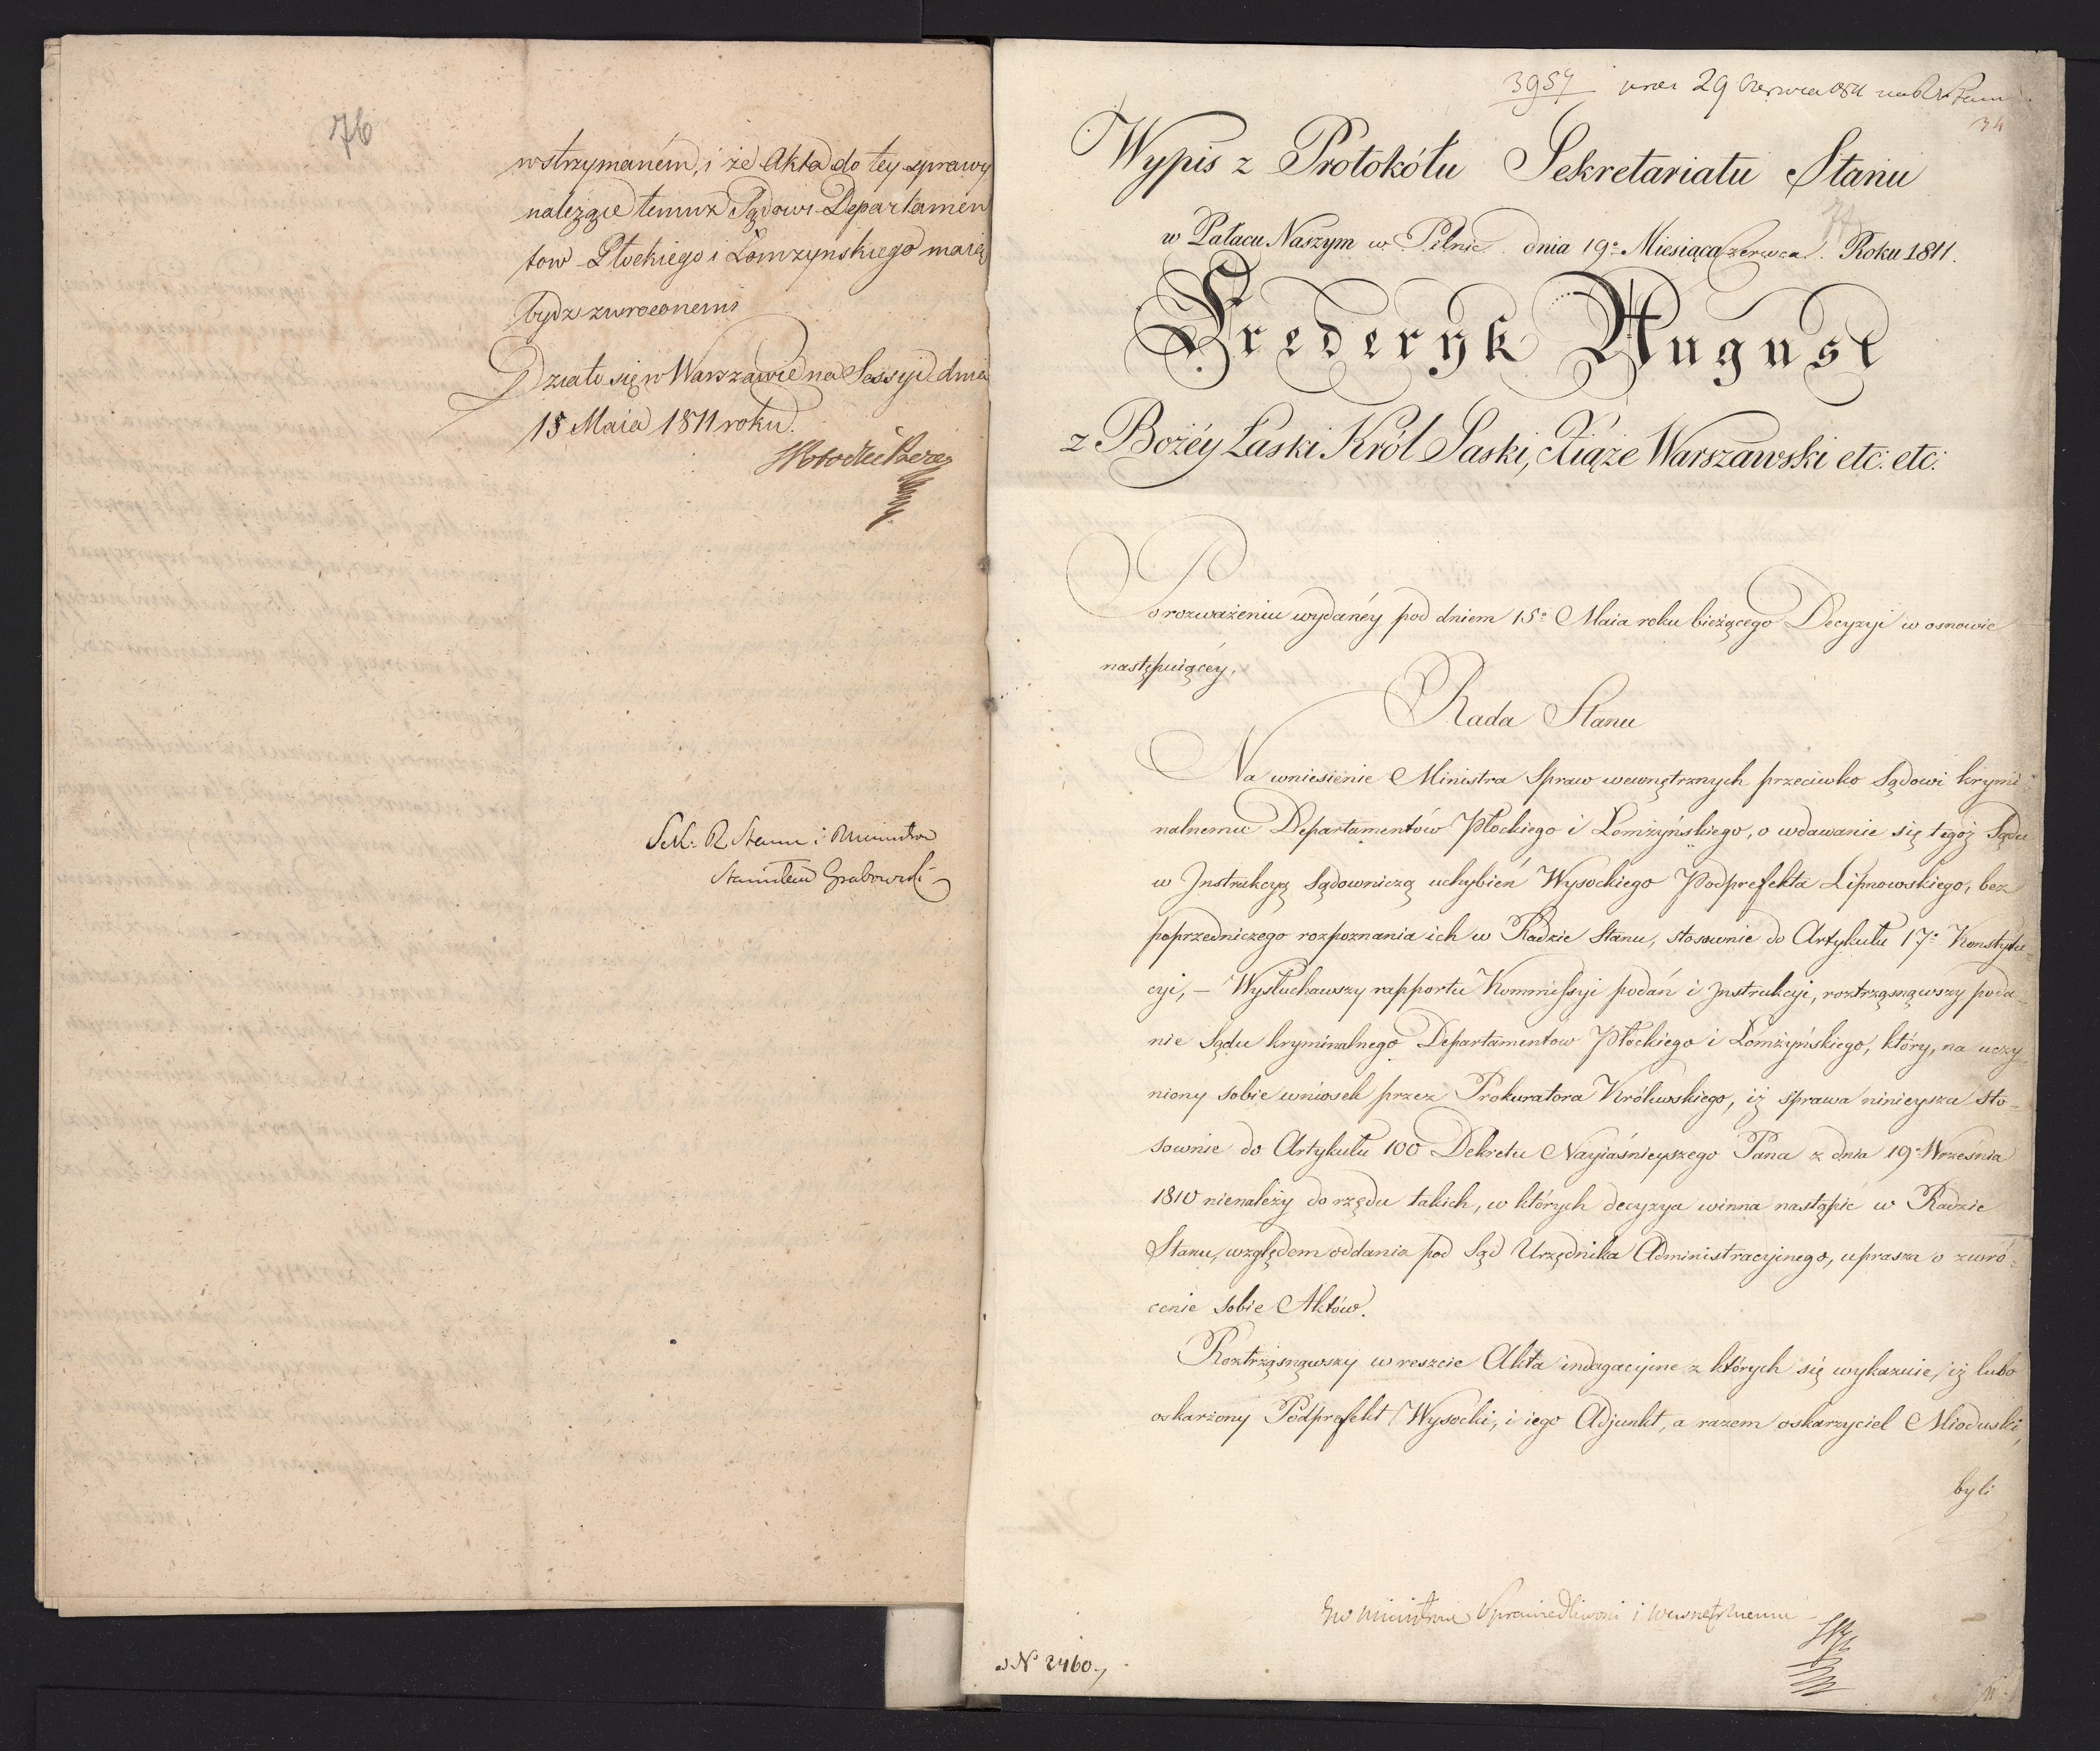 76
wstrzymaném, i że Akta do tey sprawy
należące temuż Sądowi Departamen
tow Płockiego i Łomzynskiego maią
bydz zwroconemi
Działo się w Warszawie na Sessyi dnia
15 Maia 1811 roku.
Sek: R. Stanu i Ministrów
Stanisław Grabowski
3957 29 Czerwca
34
Wypis z Protokółu Sekretariatu Stanu
w Pałacu Naszym w Pilnic dnia 19º Miesiąca Czerwca. Roku 1811.
Fryderyk August
z Bożéy Łaski Król Saski, Xiąże Warszawski etc: etc:
Po rozważeniu wydanéy pod dniem 15º Maia roku bieżącego Decyzyi w osnowie
następuiącéy,
Rada Stanu
Na wniesienie Ministra Spraw wewnętrznych przeciwko Sądowi krymi
nalnemu Departamentów Płockiego i Łomżyńskiego, o wdawanie się tegoż Sądu
w Instrukcyą Sądowniczą uchybień Wysockiego Podprefekta Lipnowskiego, bez
poprzedniczego rozpoznania ich w Radzie Stanu, stosownie do Artykułu 17º Konstytu=
cyi, – Wysłuchawszy rapportu Kommissyi podań i Instrukcyi, roztrząsnąwszy poda=
nie Sądu kryminalnego Departamentow Płockiego i Łomżyńskiego, który, na uczy=
niony sobie wniosek przez Prokuratora Królewskiego, iż sprawa ninieysza sto=
sownie do Artykułu 100 Dekretu Nayiaśnieyszego Pana z dnia 19º Września
1810 nienależy do rzędu takich, w których decyzya winna nastąpić w Radzie
Stanu, względem oddania pod Sąd Urzędnika Administracyinego, uprasza o zwró=
cenie sobie Aktów.
Roztrząsnąwszy wreszcie Akta indagacyine z których się wykazuie, iż lubo
oskarżony Podprefekt Wysocki, i iego Adjunkt, a razem oskarzyciel Mioduski,
byli
Sprawiedliwości i Wewnętrznemu
N 2460.